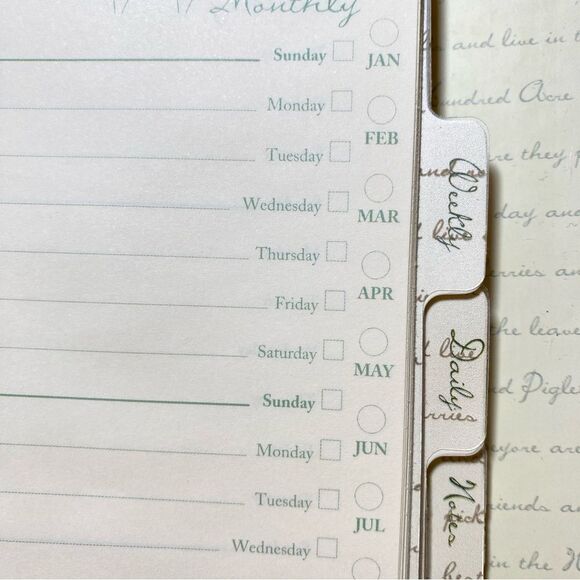 Monthly
Sunday
JAN
Monday
FEB
Tuesday
Wednesday
MAR
Thursday
APR
Friday
Saturday
MAY
Sunday
JUN
Monday
Tuesday
JUL
Wednesday
Weekly
Daily
Notes
and live in t
Hundred Acre
re they p
day and
erries an
the leave
d Pigle
eyore are
iends a
est in the H